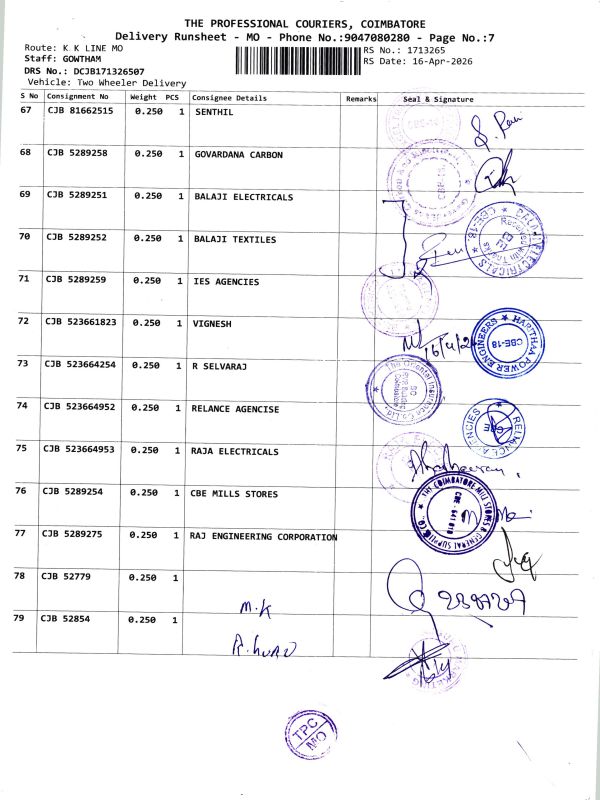 THE PROFESSIONAL COURIERS, COIMBATORE
Delivery Runsheet - MO - Phone No.:9047080280 - Page No.:7
Route: K K LINE MO
Staff: GOWTHAM
DRS No.: DCJB171326507
Vehicle: Two Wheeler Delivery
RS No.: 1713265
RS Date: 16-Apr-2026
S No Consignment No Weight PCS Consignee Details Remarks Seal & Signature
67 CJB 81662515 0.250 1 SENTHIL
68 CJB 5289258 0.250 1 GOVARDANA CARBON
69 CJB 5289251 0.250 1 BALAJI ELECTRICALS
70 CJB 5289252 0.250 1 BALAJI TEXTILES
71 CJB 5289259 0.250 1 IES AGENCIES
72 CJB 523661823 0.250 1 VIGNESH
16/4/26
HARITHAA POWER ENGINEERS
CBE-18
73 CJB 523664254 0.250 1 R SELVARAJ
The Oriental Insurance Co.Ltd.
74 CJB 523664952 0.250 1 RELANCE AGENCISE
RELIANCE AGENCIES
CBE
75 CJB 523664953 0.250 1 RAJA ELECTRICALS
76 CJB 5289254 0.250 1 CBE MILLS STORES
THE COIMBATORE MILL STORES & GENERAL SUPPLIES CO
CBE - 641 018
77 CJB 5289275 0.250 1 RAJ ENGINEERING CORPORATION
78 CJB 52779 0.250 1
M.K
79 CJB 52854 0.250 1
TPC
MO